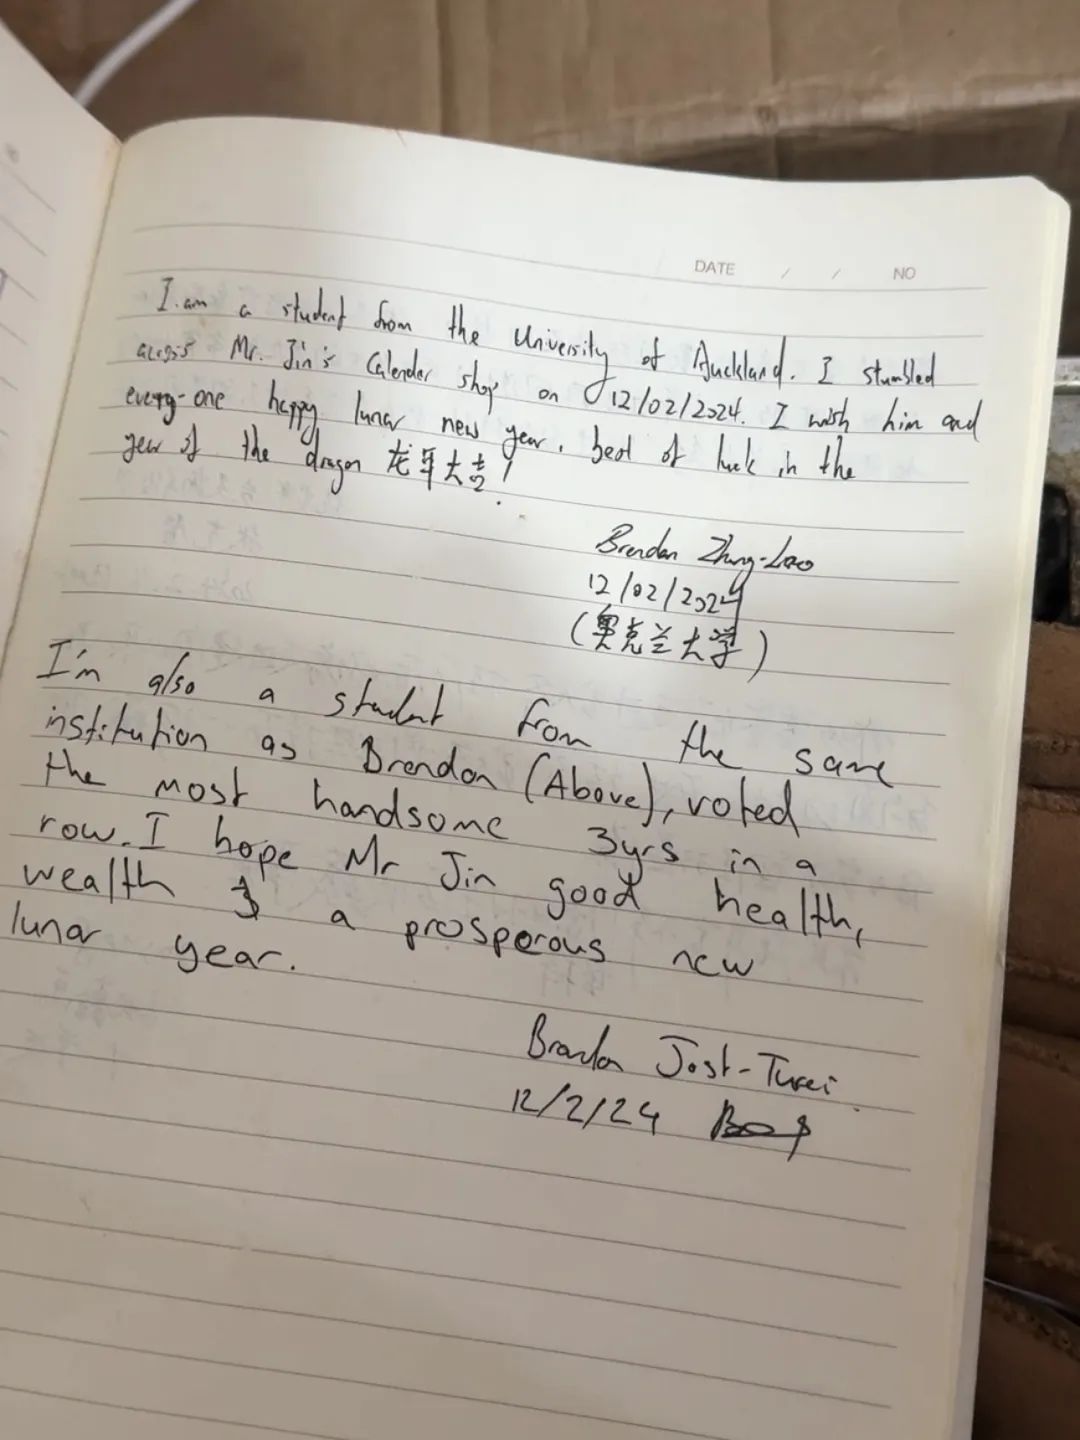 DATE / / NO
I am a student from the University of Auckland. I stumbled
across Mr. Jin's Calender shop on 12/02/2024. I wish him and
every-one happy lunar new year, best of luck in the
year of the dragon 龙年大吉!
Brendan Zhang-Lao
12/02/2024
(奥克兰大学)
I'm also a student from the same
institution as Brendon (Above), voted
the most handsome 3yrs in a
row. I hope Mr Jin good health,
wealth & a prosperous new
lunar year.
Jost-Turei
12/2/24